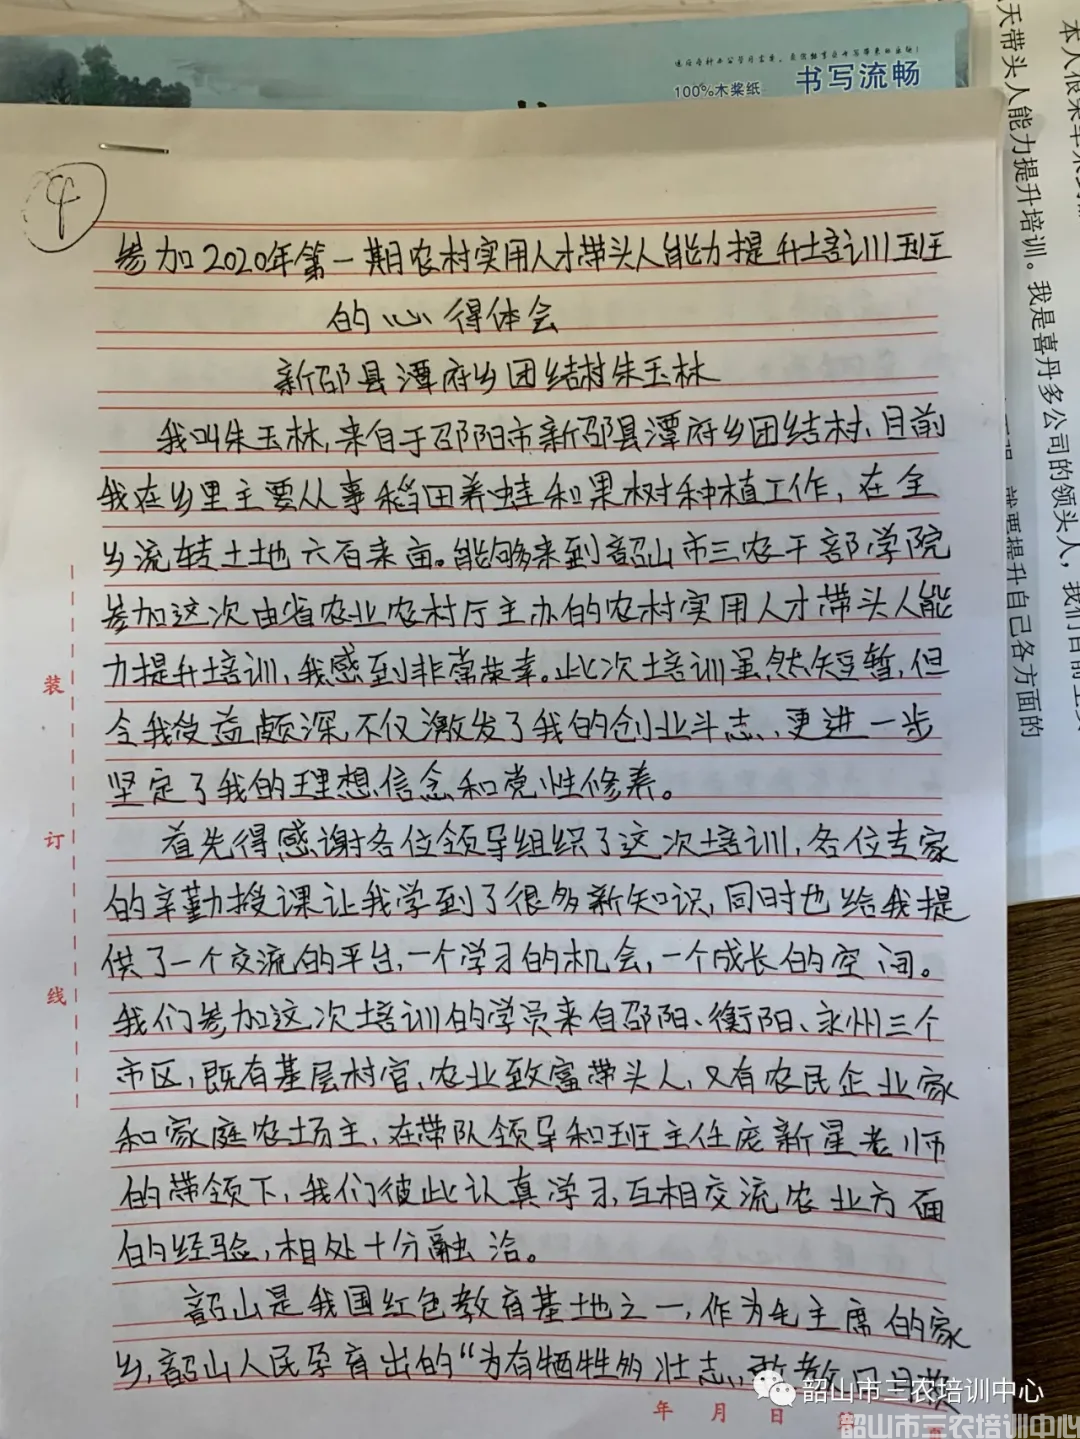 100%木桨纸 书写流畅
4
参加2020年第一期农村实用人才带头人能力提升培训班
的心得体会
新邵县潭府乡团结村朱玉林
我叫朱玉林,来自于邵阳市新邵县潭府乡团结村、目前
我在乡里主要从事稻田养蛙和果树种植工作,在全
乡流转土地六百来亩。能够来到韶山市三农干部学院
参加这次由省农业农村厅主办的农村实用人才带头人能
力提升培训,我感到非常荣幸。此次培训虽然短暂,但
令我受益颇深,不仅激发了我的创业斗志,更进一步
坚定了我的理想信念和党性修养。
首先得感谢各位领导组织了这次培训,各位专家
的辛勤授课让我学到了很多新知识,同时也给我提
供了一个交流的平台,一个学习的机会,一个成长的空间。
我们参加这次培训的学员来自邵阳、衡阳、永州三个
市区,既有基层村官、农业致富带头人,又有农民企业家
和家庭农场主,在带队领导和班主任庞新星老师
的带领下,我们彼此认真学习,互相交流农业方面
的经验,相处十分融洽。
韶山是我国红色教育基地之一,作为毛主席的家
乡,韶山人民孕育出的“为有牺牲多壮志,敢教日月换
装
订
线
年 月 日 第
天带头人能力提升培训。我是喜丹多公司的领头人,我们目前主
就要提升自己各方面的
韶山市三农培训中心
韶山市三农培训中心